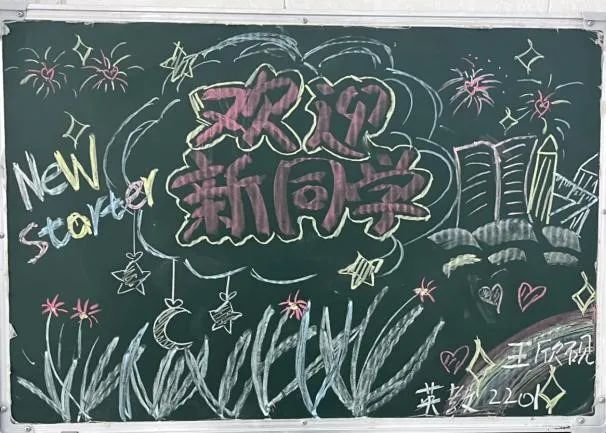 欢迎
新同学
New
Starter
王欣砚
英教2201